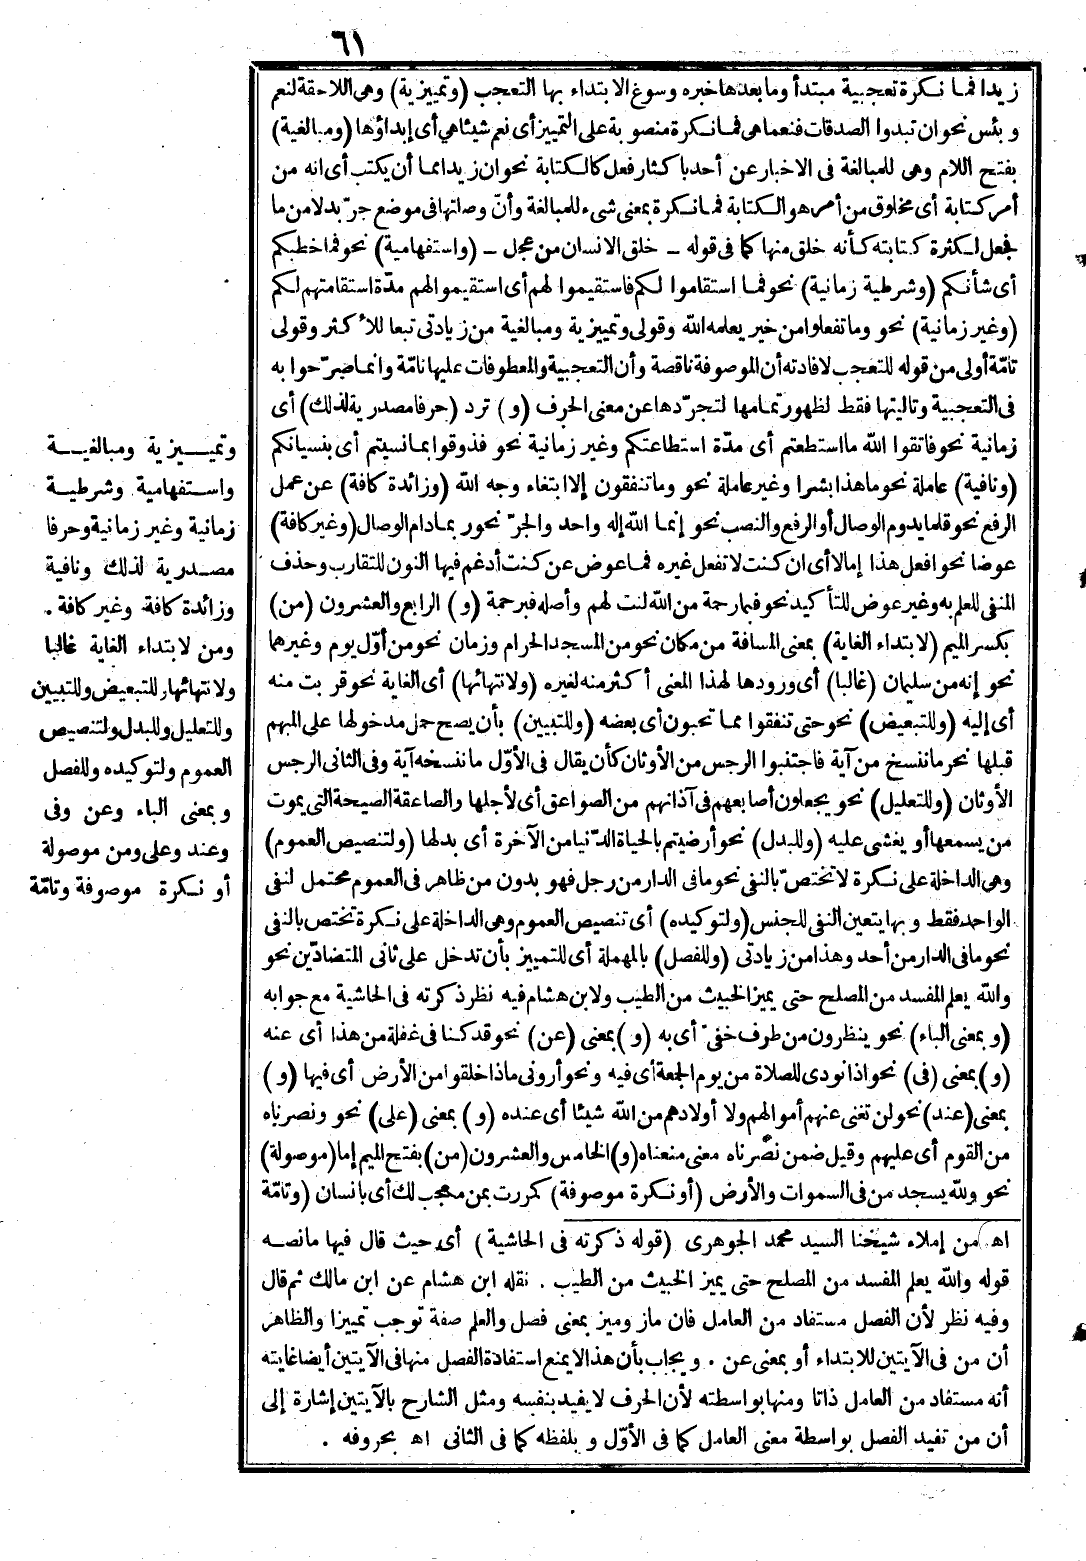 ٦١
زيدا فما نكرة تعجبية مبتدأ وما بعدها خبره وسوغ الابتداء بها التعجب (وتمييزية) وهى اللاحقة لنعم
وبئس نحو ان تبدوا الصدقات فنعما هى فما نكرة منصوبة على التمييز أى نعم شيئا هي أى إبداؤها (ومبالغية)
بفتح اللام وهى للمبالغة فى الاخبار عن أحد باكثار فعل كالكتابة نحو ان زيدا مما أن يكتب أى انه من
أمر كتابة أى مخلوق من أمر هو الكتابة فما نكرة بمعنى شىء للمبالغة وأنّ وصلتها فى موضع جرّ بدلا من ما
فجعل لكثرة كتابته كأنه خلق منها كما فى قوله ـ خلق الانسان من عجل ـ (واستفهامية) نحو فما خطبكم
أى شأنكم (وشرطية زمانية) نحو فما استقاموا لكم فاستقيموا لهم أى استقيموا لهم مدّة استقامتهم لكم
(وغير زمانية) نحو وما تفعلوا من خير يعلمه الله وقولى وتمييزية ومبالغية من زيادتى تبعا للأكثر وقولى
تامّة أولى من قوله للتعجب لافادته أن الموصوفة ناقصة وأن التعجبية والمعطوفات عليها تامّة وانما صرّحوا به
فى التعجبية وتاليتها فقط لظهور تمامها لتجرّدها عن معنى الحرف (و) ترد (حرفا مصدرية لذلك) أى
زمانية نحو فاتقوا الله ما استطعتم أى مدّة استطاعتكم وغير زمانية نحو فذوقوا بما نسيتم أى بنسيانكم
(ونافية) عاملة نحو ما هذا بشرا وغير عاملة نحو وما تنفقون إلا ابتغاء وجه الله (وزائدة كافة) عن عمل
الرفع نحو قلما يدوم الوصال أو الرفع والنصب نحو إنما الله إله واحد والجرّ نحو ربما دام الوصال (وغير كافة)
عوضا نحو افعل هذا إما لا أى ان كنت لا تفعل غيره فما عوض عن كنت أدغم فيها النون للتقارب وحذف
المنفى للعلم به وغير عوض للتأكيد نحو فبما رحمة من الله لنت لهم وأصله فبرحمة (و) الرابع والعشرون (من)
بكسر الميم (لابتداء الغاية) بمعنى المسافة من مكان نحو من المسجد الحرام وزمان نحو من أوّل يوم وغيرهما
نحو إنه من سليمان (غالبا) أى ورودها لهذا المعنى أكثر منه لغيره (ولانتهائها) أى الغاية نحو قربت منه
أى إليه (وللتبعيض) نحو حتى تنفقوا مما تحبون أى بعضه (وللتبيين) بأن يصح حمل مدخولها على المبهم
قبلها نحو ما ننسخ من آية فاجتنبوا الرجس من الأوثان كأن يقال فى الأوّل ما ننسخه آية وفى الثانى الرجس
الأوثان (وللتعليل) نحو يجعلون أصابعهم فى آذانهم من الصواعق أى لأجلها والصاعقة الصيحة التى يموت
من يسمعها أو يغشى عليه (وللبدل) نحو أرضيتم بالحياة الدّنيا من الآخرة أى بدلها (ولتنصيص العموم)
وهى الداخلة على نكرة لا تختصّ بالنفى نحو ما فى الدار من رجل فهو بدون من ظاهر فى العموم محتمل لنفى
الواحد فقط وبها يتعين النفى للجنس (ولتوكيده) أى تنصيص العموم وهى الداخلة على نكرة تختص بالنفى
نحو ما فى الدار من أحد وهذا من زيادتى (وللفصل) بالمهملة أى للتمييز بأن تدخل على ثانى المتضادّين نحو
والله يعلم المفسد من المصلح حتى يميز الخبيث من الطيب ولابن هشام فيه نظر ذكرته فى الحاشية مع جوابه
(وبمعنى الباء) نحو ينظرون من طرف خفىّ أى به (و) بمعنى (عن) نحو قد كنا فى غفلة من هذا أى عنه
(و) بمعنى (فى) نحو اذا نودى للصلاة من يوم الجمعة أى فيه ونحو أرونى ماذا خلقوا من الأرض أى فيها (و)
بمعنى (عند) نحو لن تغنى عنهم أموالهم ولا أولادهم من الله شيئا أى عنده (و) بمعنى (على) نحو ونصرناه
من القوم أى عليهم وقيل ضمن نصرناه معنى منعناه (و) الخامس والعشرون (من) بفتح الميم إما (موصولة)
نحو ولله يسجد من فى السموات والأرض (أو نكرة موصوفة) كمررت بمن معجب لك أى بانسان (وتامّة
اه من إملاء شيخنا السيد محمد الجوهرى (قوله ذكرته فى الحاشية) أى حيث قال فيها ما نصه
قوله والله يعلم المفسد من المصلح حتى يميز الخبيث من الطيب . نقله ابن هشام عن ابن مالك ثم قال
وفيه نظر لأن الفصل مستفاد من العامل فان ماز وميز بمعنى فصل والعلم صفة توجب تمييزا والظاهر
أن من فى الآيتين للابتداء أو بمعنى عن . ويجاب بأن هذا لا يمنع استفادة الفصل منها فى الآيتين أيضا غايته
أنه مستفاد من العامل ذاتا ومنها بواسطته لأن الحرف لا يفيد بنفسه ومثل الشارح بالآيتين إشارة إلى
أن من تفيد الفصل بواسطة معنى العامل كما فى الأوّل وبلفظه كما فى الثانى اه بحروفه .
وتمييزية ومبالغية
واستفهامية وشرطية
زمانية وغير زمانية وحرفا
مصدرية لذلك ونافية
وزائدة كافة وغير كافة .
ومن لابتداء الغاية غالبا
ولانتهائها وللتبعيض وللتبيين
وللتعليل وللبدل ولتنصيص
العموم ولتوكيده وللفصل
وبمعنى الباء وعن وفى
وعند وعلى ومن موصولة
أو نكرة موصوفة وتامّة